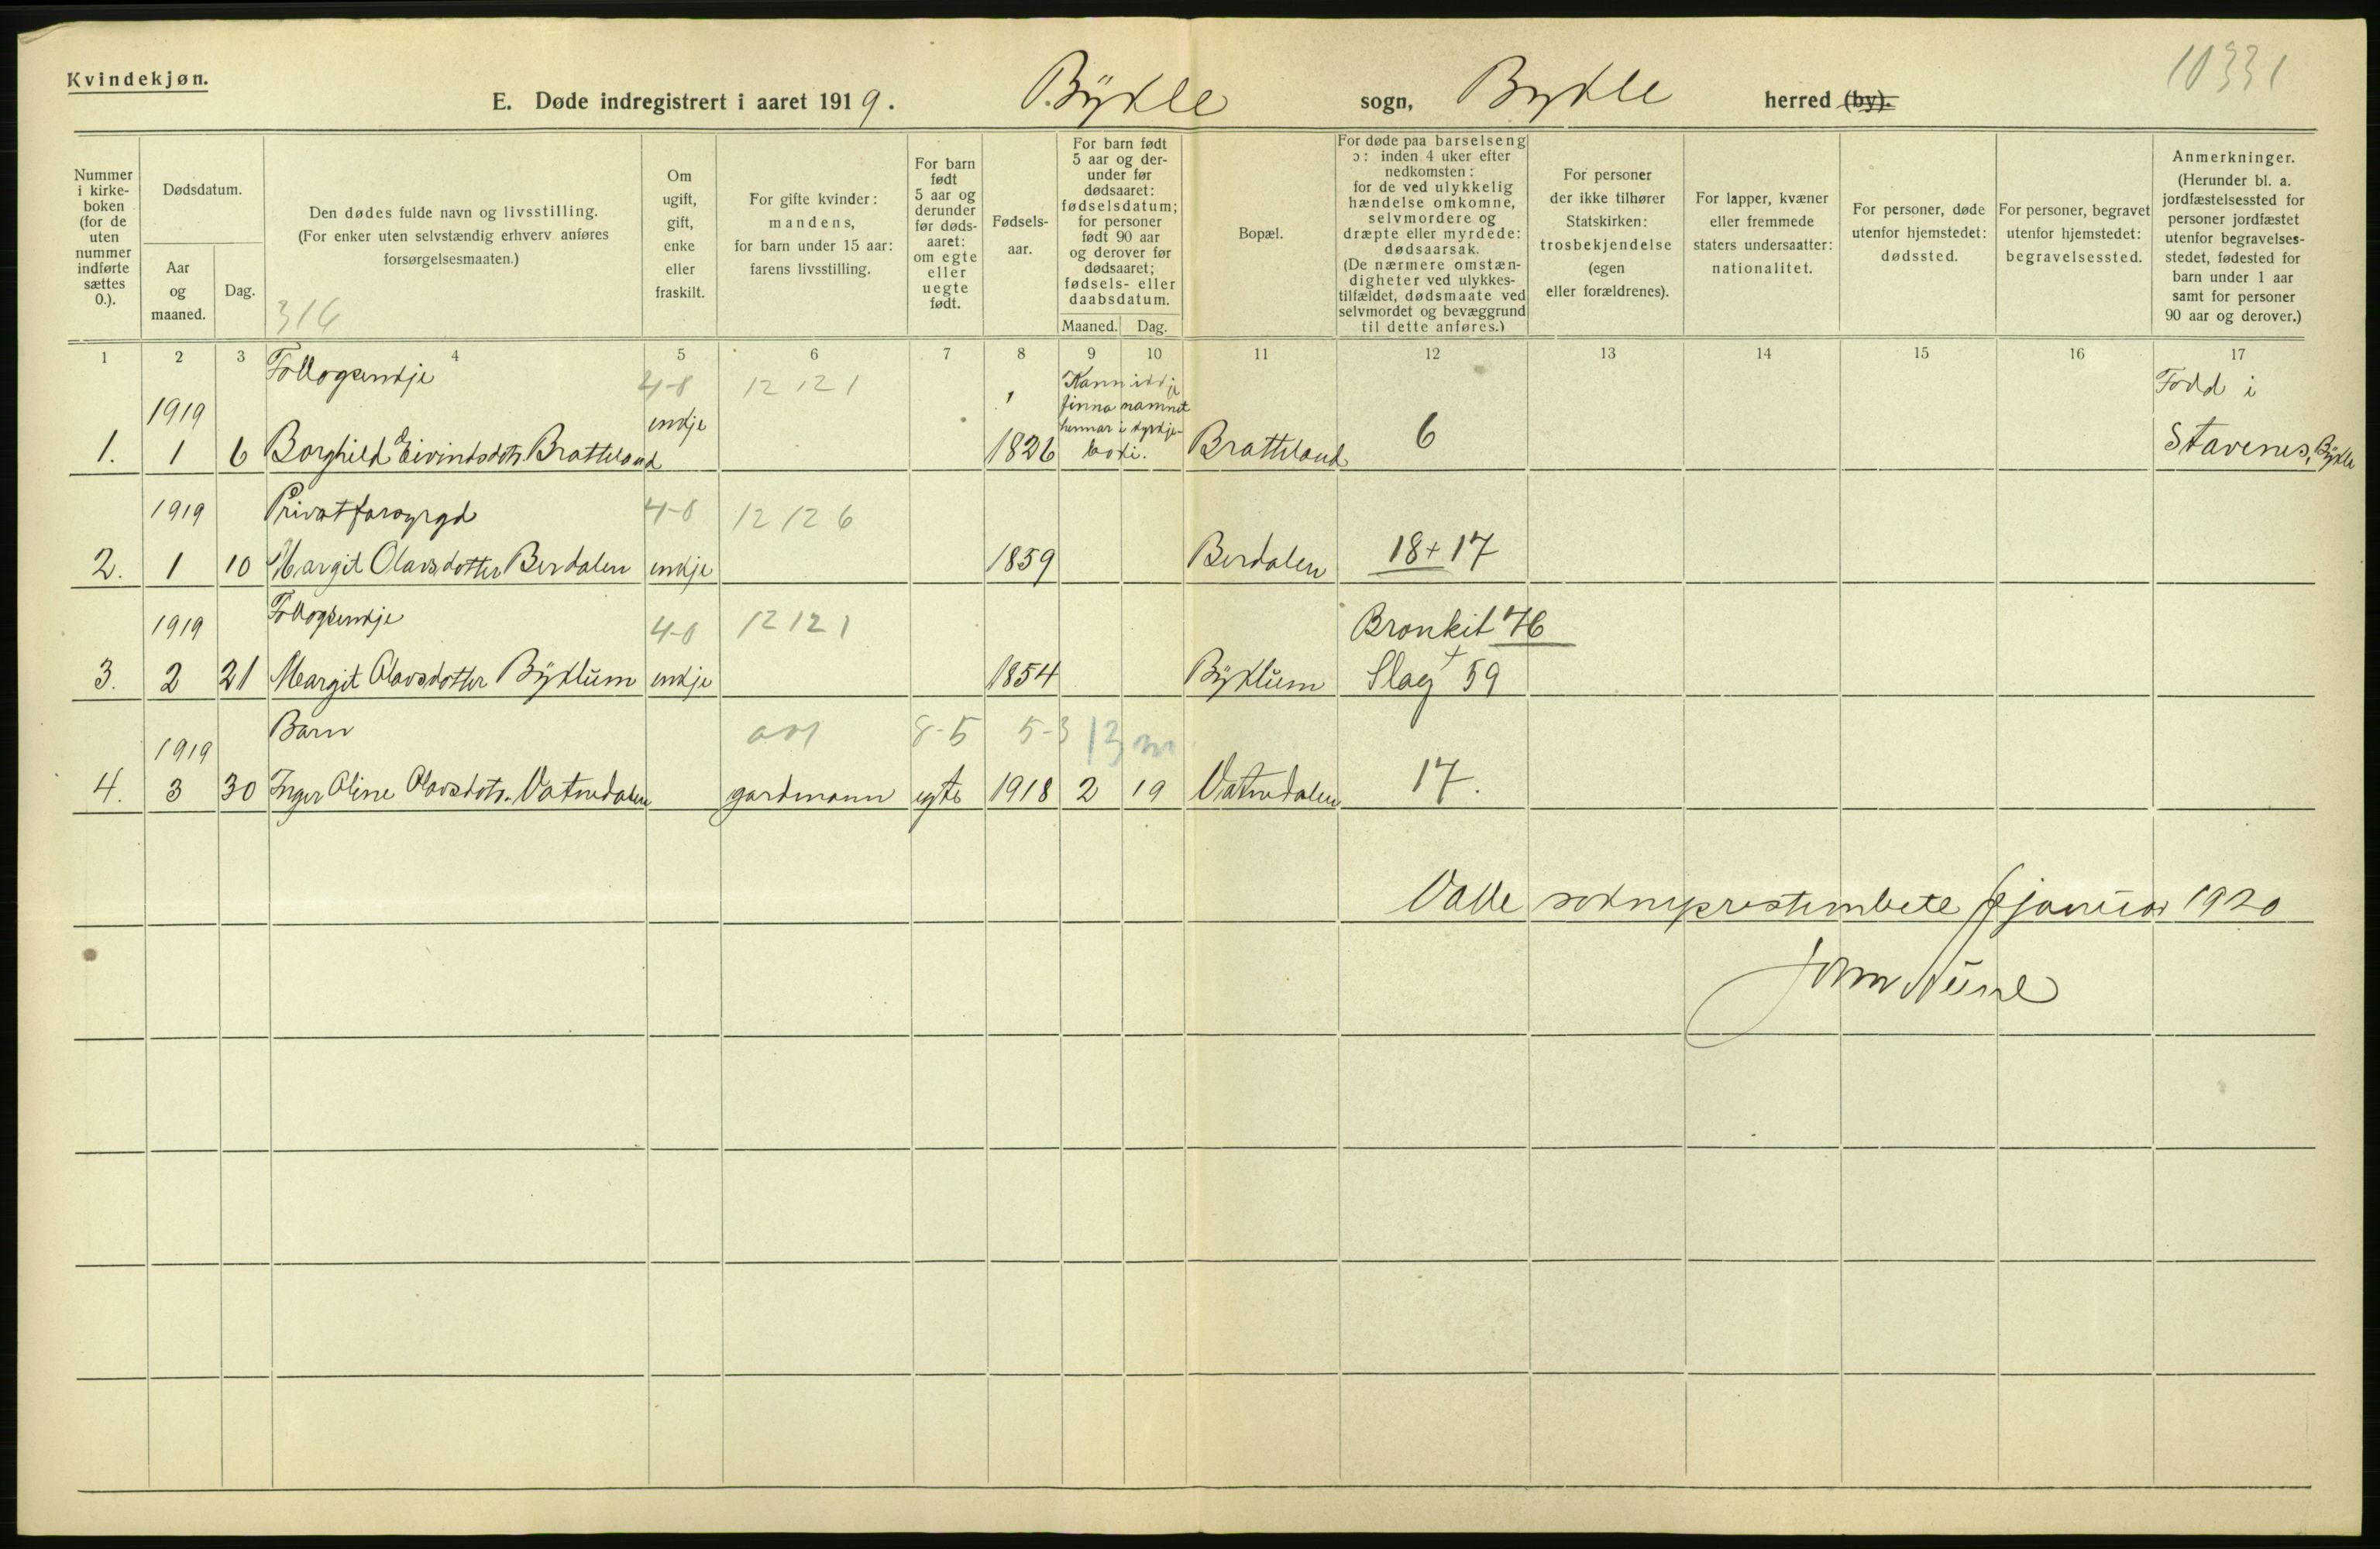 Kvindekjøn.
10331
E. Døde indregistrert i aaret 1919. Bykle sogn, Bykle herred (by).
Nummer i kirkeboken (for de uten nummer indførte sættes 0.).
Dødsdatum.
Aar og maaned.
Dag.
Den dødes fulde navn og livsstilling.
(For enker uten selvstændig erhverv anføres forsørgelsesmaaten.)
316
Om ugift, gift, enke eller fraskilt.
For gifte kvinder: mandens, for barn under 15 aar: farens livsstilling.
For barn født 5 aar og derunder før dødsaaret: om egte eller uegte født.
Fødselsaar.
For barn født 5 aar og derunder før dødsaaret: fødselsdatum; for personer født 90 aar og derover før dødsaaret; fødsels- eller daabsdatum.
Maaned. Dag.
Bopæl.
For døde paa barselseng ɔ: inden 4 uker efter nedkomsten: for de ved ulykkelig hændelse omkomne, selvmordere og dræpte eller myrdede: dødsaarsak. (De nærmere omstændigheter ved ulykkestilfældet, dødsmaate ved selvmordet og bevæggrund til dette anføres.)
For personer der ikke tilhører Statskirken: trosbekjendelse (egen eller forældrenes).
For lapper, kvæner eller fremmede staters undersaatter: nationalitet.
For personer, døde utenfor hjemstedet: dødssted.
For personer, begravet utenfor hjemstedet: begravelsessted.
Anmerkninger. (Herunder bl. a. jordfæstelsessted for personer jordfæstet utenfor begravelsesstedet, fødested for barn under 1 aar samt for personer 90 aar og derover.)
1 2 3 4 5 6 7 8 9 10 11 12 13 14 15 16 17
Follogsenkje 4-8 12 12 1 Kann ikkje Fødd i
1919 enkje finna namnet
hennar i kyrkje-
1. 1 6 Borghild Eivindsdotr. Bratteland 1826 boki. Bratteland 6 Stavenes, Bykle
1919 Privatforsyrgd 4-8 12 12 6
2. 1 10 Margit Olavsdotter Berdalen enkje 1859 Berdalen 18+17
1919 Follogsenkje 4-8 12 12 1 Bronkit 46
+
3. 2 21 Margit Olavsdotter Byklum enkje 1854 Byklum Slag 59
Barn 8-5 5-3 13 m
1919
4. 3 30 Inger Oline Olavsdotr. Vatnedalen gardmann egte 1918 2 19 Vatnedalen 17.
Valle sokneprestembete januar 1920